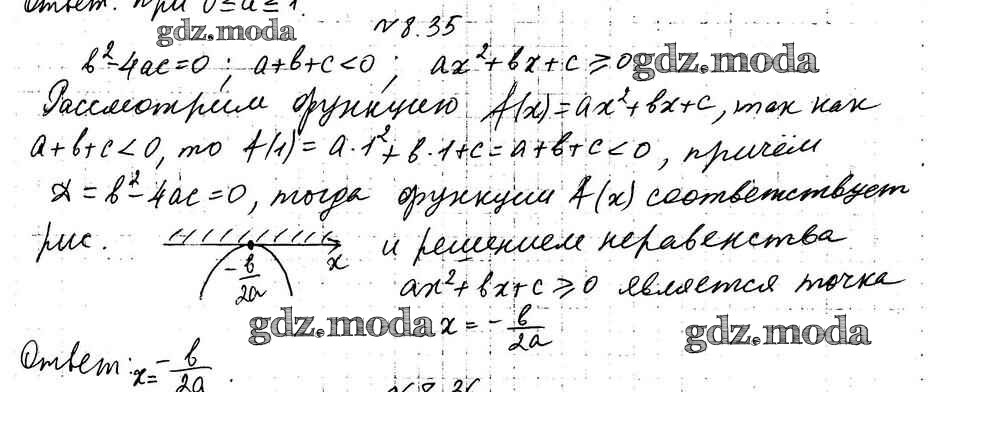 Ответ: при 0 ≤ a ≤ 1.
gdz.moda
N 8.35
b²-4ac=0; a+b+c<0; ax²+bx+c ≥ 0
gdz.moda
Рассмотрим функцию f(x)=ax²+bx+c, так как
a+b+c<0, то f(1)=a·1²+b·1+c=a+b+c<0, причём
D=b²-4ac=0, тогда функции f(x) соответствует
рис. x и решением неравенства
-b/2a
ax²+bx+c ≥ 0 является точка
gdz.moda x = -b/2a gdz.moda
Ответ: x= -b/2a.
N 8.36